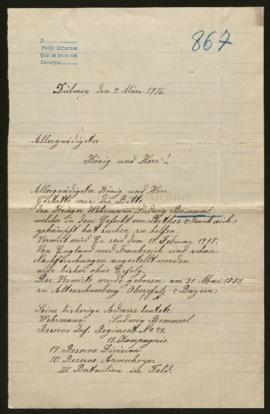 867
Dülmen den 7. März 1916.
Allergnädigster
König und Herr!
Allergnädigster König und Herr
mir die Bitte
den Krieger Wehrmann Ludwig Bemmerl
welcher in dem Gefecht von
gekämpft hat suchen zu helfen.
Vermißt wird Er seid dem 17. Februar 1915.
Von England und Frankreich sind schon
Nachforschungen angestellt worden
aber bisher ohne Erfolg.
Der Vermißte wurde geboren am 21. Mai 1881
zu Altenschneeberg Oberpfalz (Bayern)
Seine bisherige Adresse lautete
Wehrmann Ludwig Bemmerl
Reserve Inf. Regiment No
11. Kompagnie
Reserve Division
Reserve Armeekorps
III Bataillon im Feld.